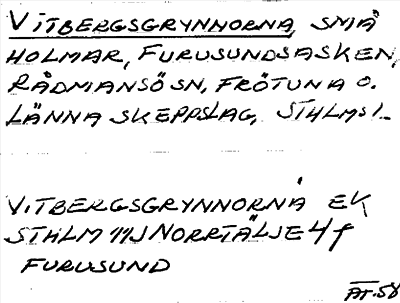 VITBERGSGRYNNORNA, SMÅ
HOLMAR, FURUSUNDSASKEN,
RÅDMANSÖ SN, FRÖTUNA O.
LÄNNA SKEPPSLAG, STHLMS L.
VITBERGSGRYNNORNA EK
STHLM 11J NORRTÄLJE 4f
FURUSUND
ÄT.58